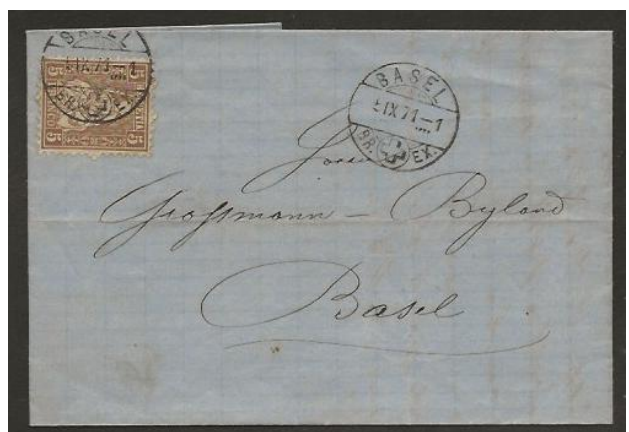 BASEL
IX 71–1
BR. EX.
5 5
5 5
BASEL
IX 71–1
BR. EX.
Grossmann – Byland
Basel